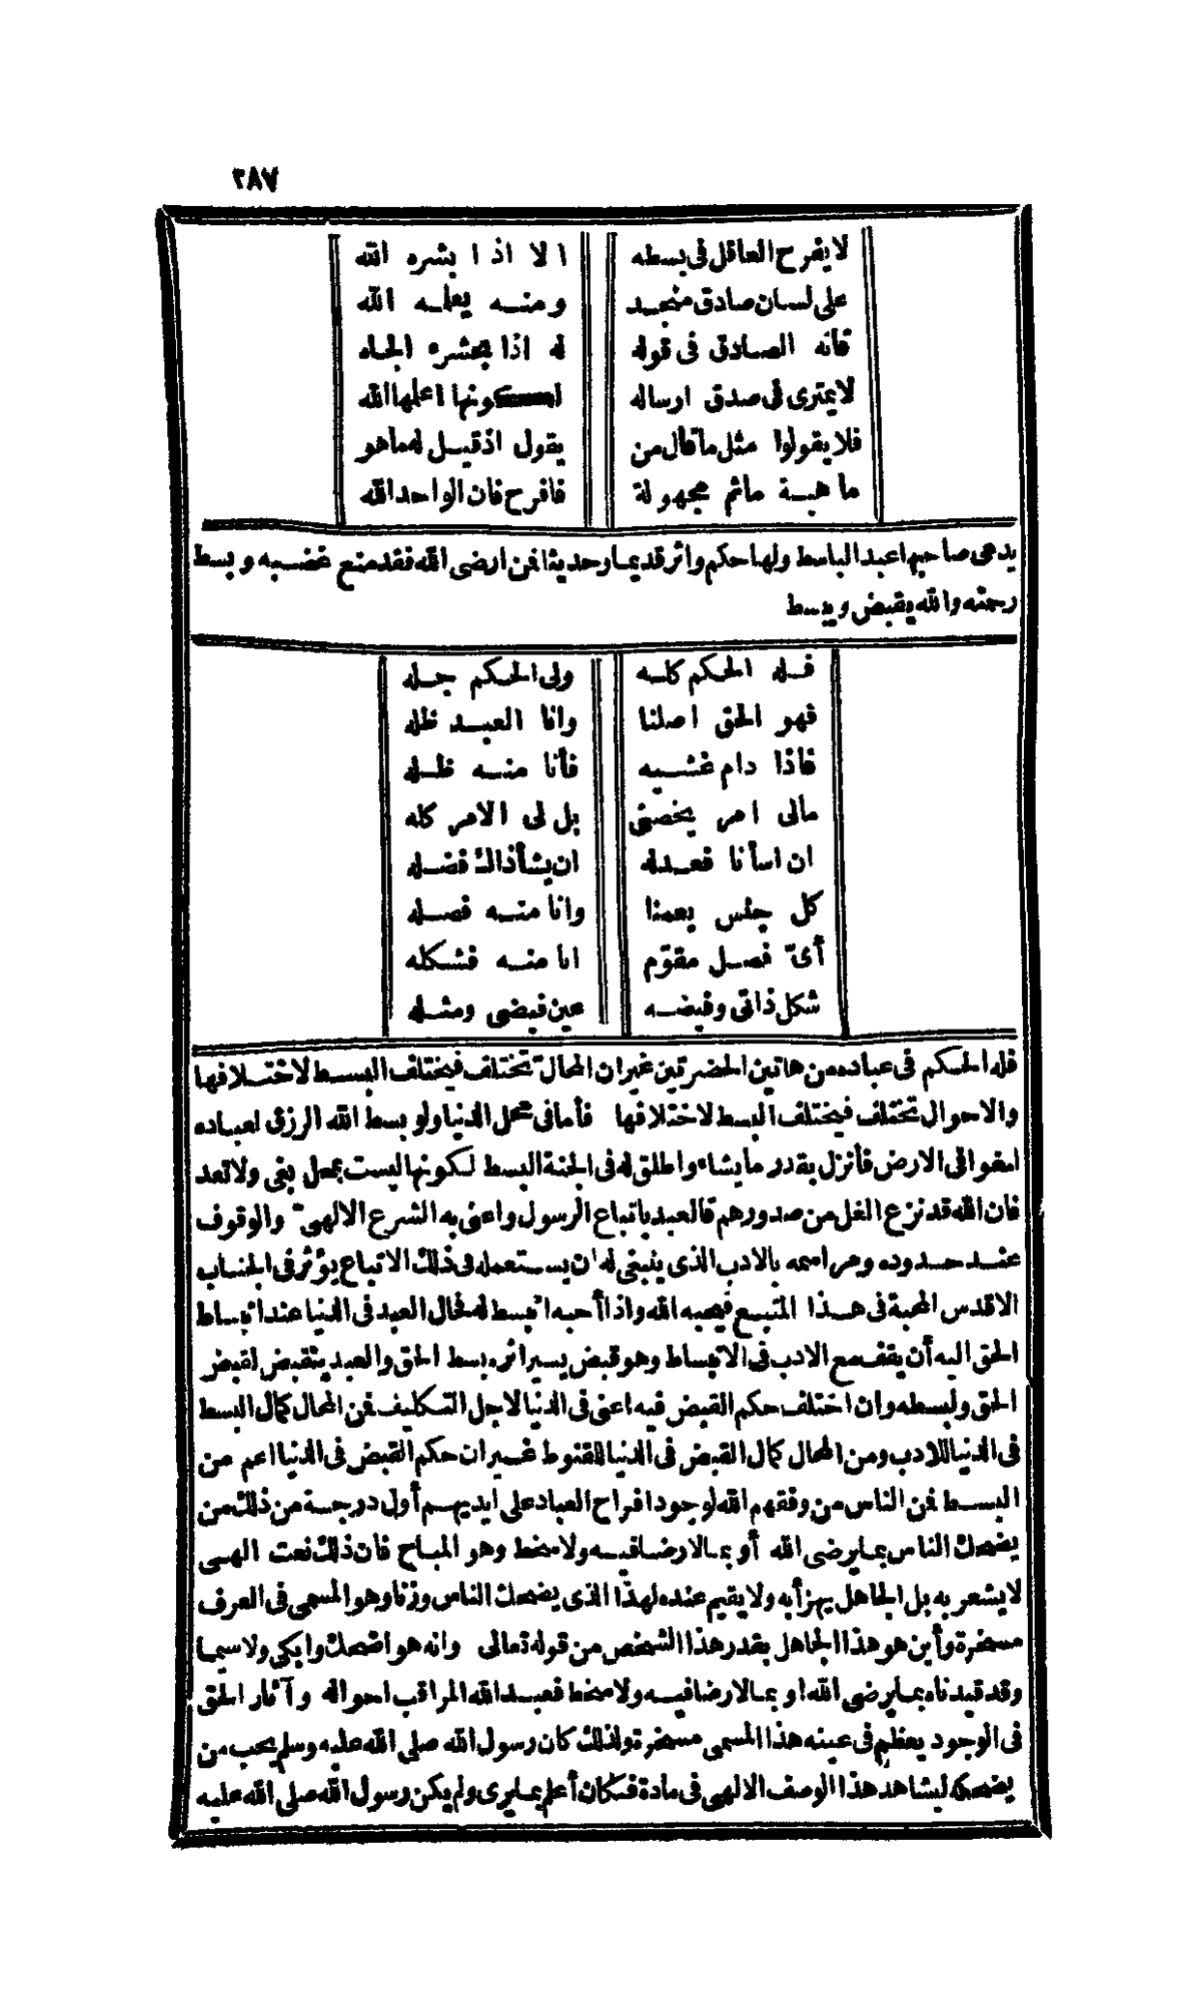 ٢٨٧
لا يفرح العاقل فى بسطه الا اذا بشره الله
على لسان صادق منجد ومنه يعلمه الله
فانه الصادق فى قوله له اذا بحشره الجاه
لا يمترى فى صدق ارساله لكونها اعلمها الله
فلا يقولوا مثل ما قال من يقول اذ قيل له ما هو
ما هية ماثم مجهولة فافرح فان الواحد الله
يدعى صاحبها عبد الباسط ولها حكم واثر قديما وحديثا فمن ارضى الله فقد منع غضبه وبسط
رحمته والله يقبض ويبسط
فله الحكم كله ولى الحكم جله
فهو الحق اصلنا وانا العبد ظله
فاذا دام غشيه فأنا منه ظله
مالى امر يخصنى بل لى الامر كله
ان اسأنا فعدله ان يشأ ذاك فضله
كل جنس يعمنا وانا منه فصله
أىّ فصل مقوّم انا منه فشكله
شكل ذاتى وفيضه عين قبضى ومثله
فله الحكم فى عباده من هاتين الحضرتين غير ان المحالّ تختلف فيختلف البسط لاختلافها
والاحوال تختلف فيختلف البسط لاختلافها فأما فى محل الدنيا ولو بسط الله الرزق لعباده
لبغوا فى الارض فأنزل بقدر ما يشاء واطلق له فى الجنة البسط لكونها ليست بمحل بغى ولا تعد
فان الله قد نزع الغل من صدورهم فالعبد باتباع الرسول واعنى به الشرع الالهىّ والوقوف
عند حدوده ومراسمه بالادب الذى ينبغى له ان يستعمله فى ذلك الاتباع يؤثر فى الجناب
الاقدس المحبة فى هذا المتبع فيحبه الله واذا أحبه انبسط له فحال العبد فى الدنيا عند انبساط
الحق اليه أن يقف مع الادب فى الانبساط وهو قبض يسير اثره بسط الحق والعبد ينقبض لقبض
الحق ولبسطه وان اختلف حكم القبض فيه اعنى فى الدنيا لاجل التكليف فمن المحال كمال البسط
فى الدنيا للادب ومن المحال كمال القبض فى الدنيا للقنوط غير ان حكم القبض فى الدنيا اعم من
البسط فمن الناس من وفقهم الله لوجود افراح العباد على ايديهم أول درجة من ذلك من
يضحك الناس بما يرضى الله أو بما لا رضا فيه ولا سخط وهو المباح فان ذلك نعت الهى
لا يشعر به بل الجاهل يهزأ به ولا يقيم عنده لهذا الذى يضحك الناس وزنا وهو المسمى فى العرف
مسخرة وأين هو هذا الجاهل بقدر هذا الشخص من قوله تعالى وانه هو اضحك وابكى ولا سيما
وقد قيدناه بما يرضى الله او بما لا رضا فيه ولا سخط فعبد الله المراقب احواله وآثار الحق
فى الوجود يعظم فى عينه هذا المسمى مسخرة ولذلك كان رسول الله صلى الله عليه وسلم يحب من
يضحكه ليشاهد هذا الوصف الالهى فى مادة فكان أعلم بما يرى ولم يكن رسول الله صلى الله عليه